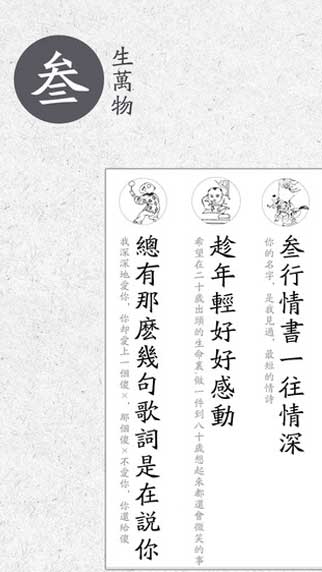 叁
生萬物
叁行情書一往情深
你的名字，是我見過，最短的情詩
趁年輕好好感動
希望在二十歲出頭的生命裏做一件到八十歲想起來都還會微笑的事
總有那麽幾句歌詞是在說你
我深深地愛你，你却愛上一個傻×，那個傻×不愛你，你還給傻